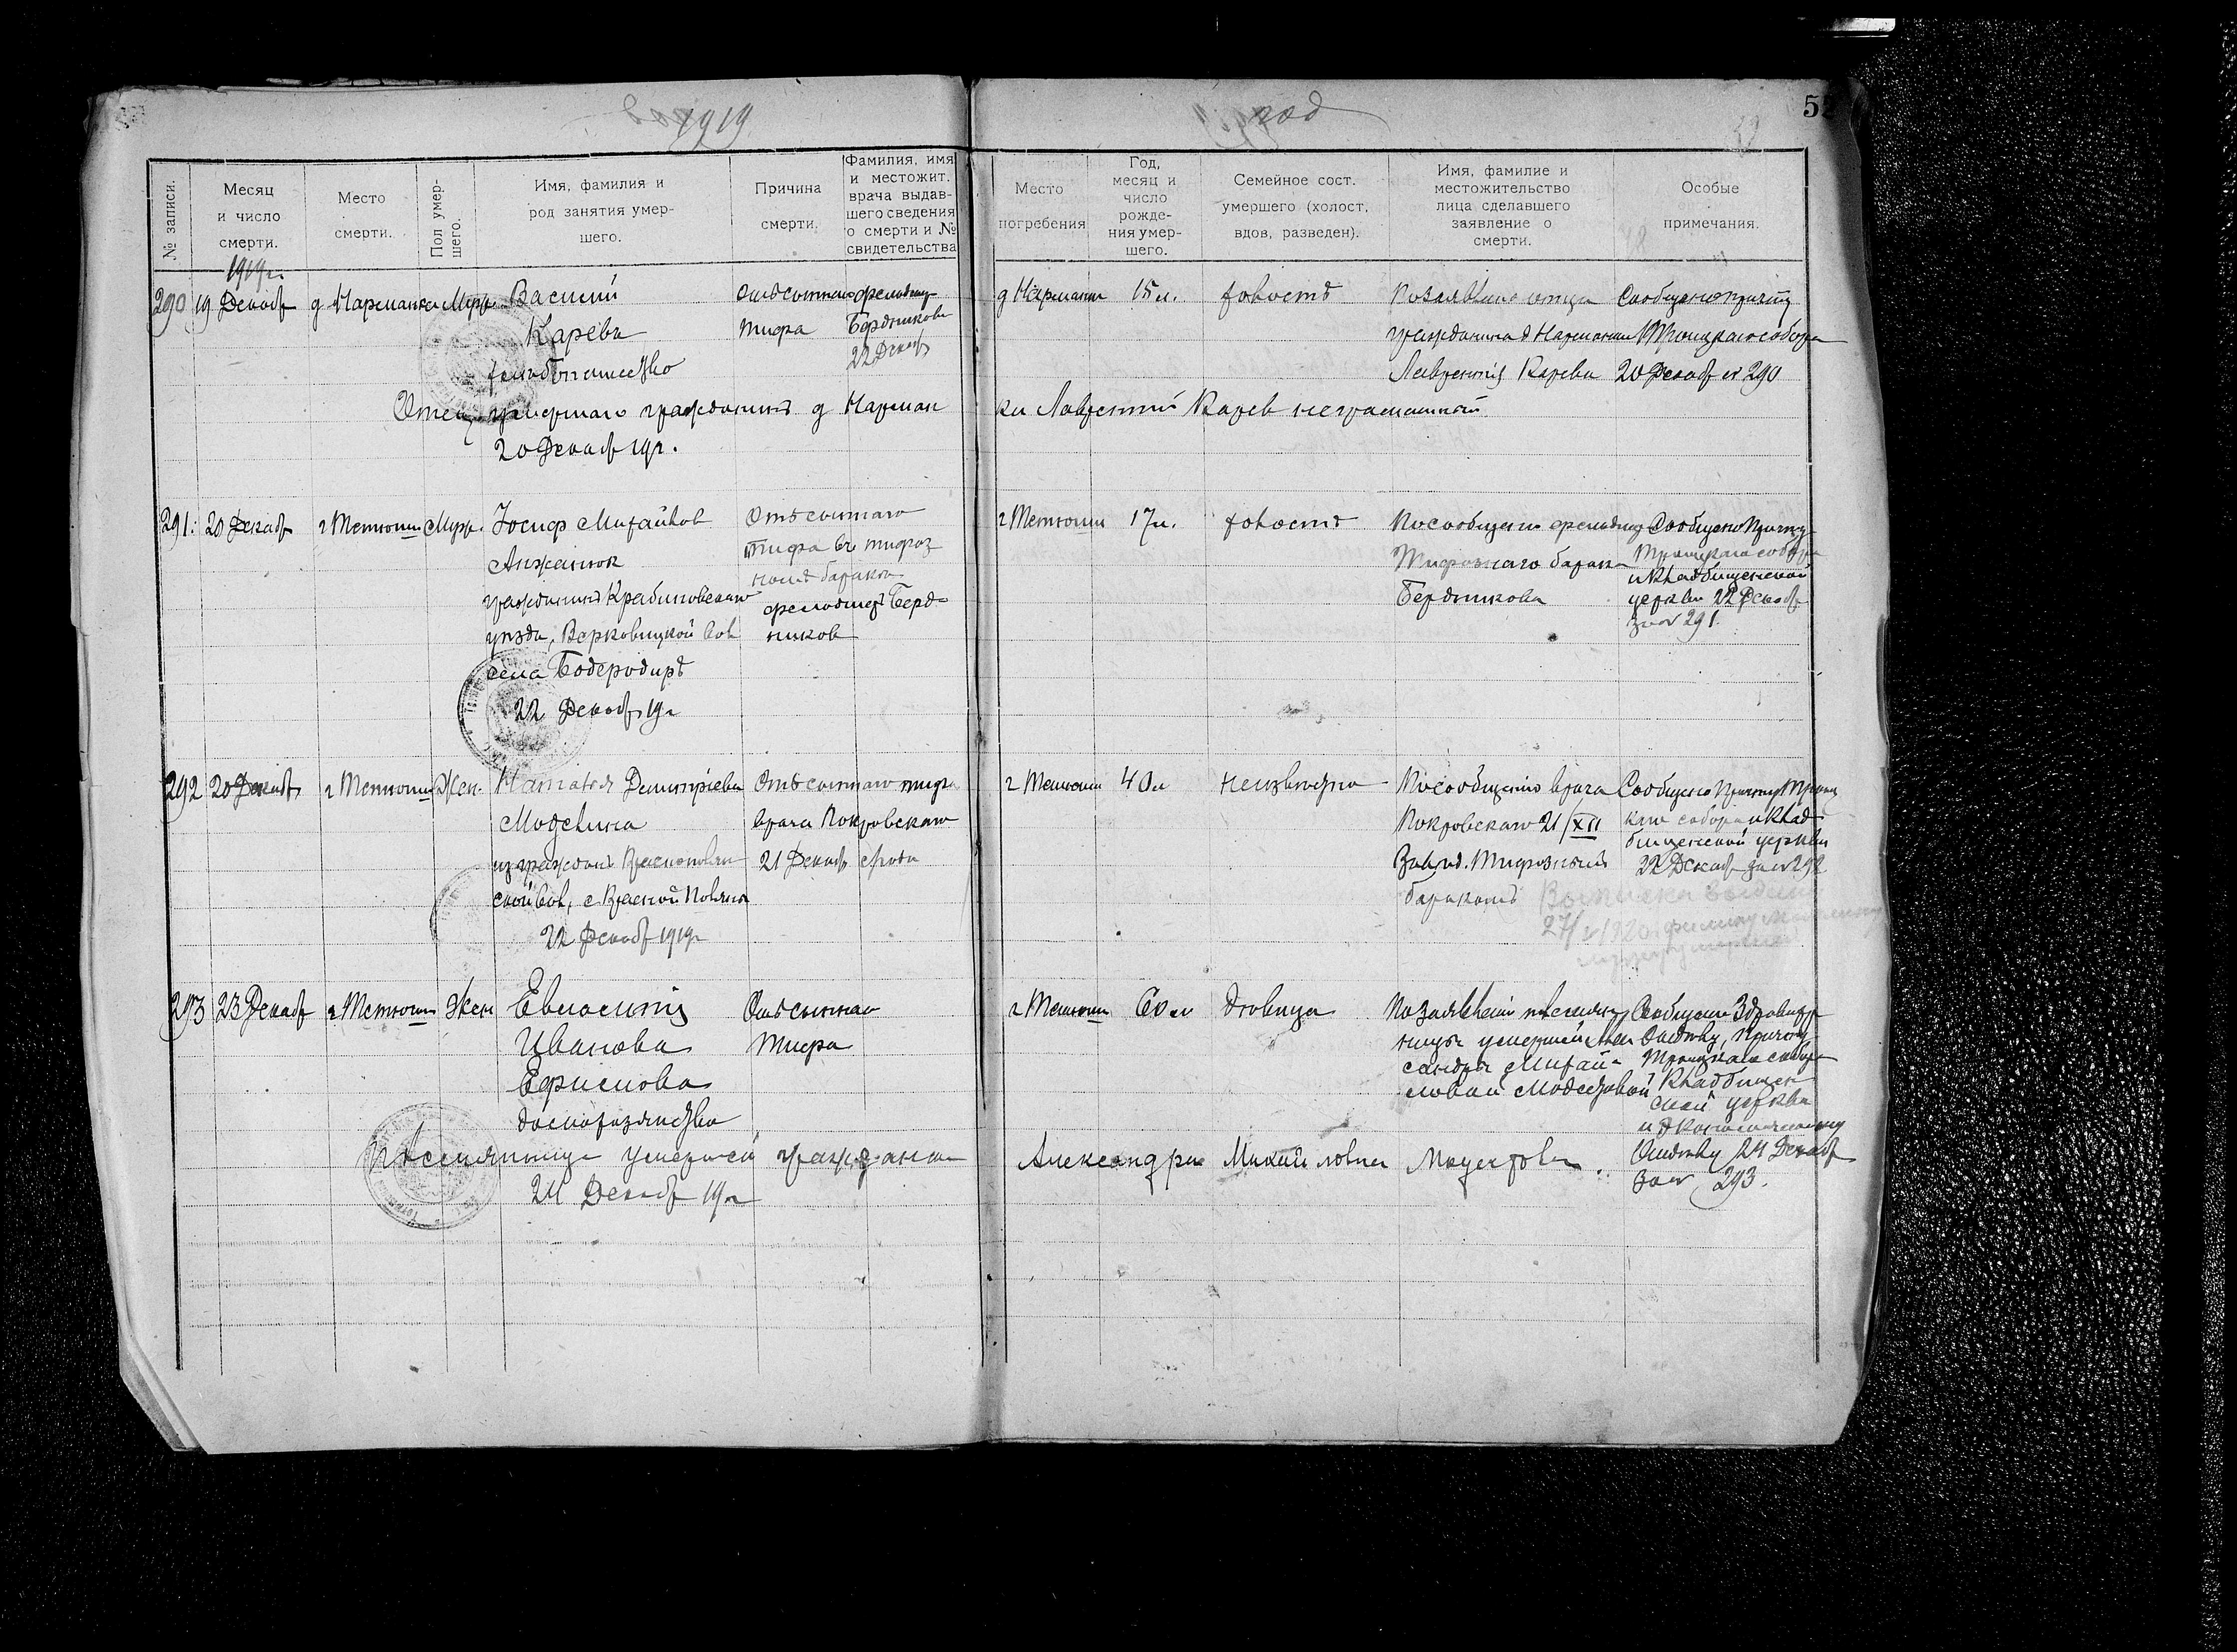 1919
год
52
№ записи.
Месяц и число смерти.
Место смерти.
Пол умер-шего.
Имя, фамилия и род занятия умер-шего.
Причина смерти.
Фамилия, имя и местожит. врача выдав-шего сведения о смерти и № свидетельства
Место погребения
Год, месяц и число рожде-ния умер-шего.
Семейное сост. умершего (холост, вдов, разведен).
Имя, фамилие и местожительство лица сделавшего заявление о смерти.
Особые примечания.
1919 г.
290 19 Декабр д Нарманка Муж. Василий
Карева
хлебопашество
отъ сыпного
тифа
фельдшер
Бердникова
22 Декабр
д Нарманки 15 л. холостъ
По заявлению отца
гражданина д Нарманки
Лаврентия Карева
Сообщено причту
Троицкаго собора
20 Декабр № 290
Отец умершаго гражданинъ д Нарман
ки Лаврентий Карев неграмотный
20 Декабр 19 г.
291. 20 Декабр г Тетюши Муж. Иосиф Михайлов
гражданинъ
уезда,
села
22 Декабр 19 г
Отъ сыпного
тифа въ тифоз
номъ бараке
фельдшер Берд-
ников
г Тетюши 17 л. холостъ
По сообщению фельдшера
Тифознаго барака
Бердникова
Сообщено Причту
Троицкаго собора
и Кладбищенской
церкви 22 Декабр
за № 291.
292 20 Декабр г Тетюши Жен. Наталья Димитриева
из граждан
22 Декабр 1919 г
Отъ сыпного тифа
врача Покровскаго
21 Декабр с/года
г Тетюши 40 л неизвестно
По сообщению врача
Покровскаго 21/XII
Завед. Тифозным
баракомъ
Сообщено Причту Троиц
каго собора и Клад
бищенской церкви
22 Декабр за № 292
Выписка выдана
293 23 Декабр г Тетюши Жен
Иванова
Ефимова
домохозяйство
Отъ сыпного
тифа
г Тетюши 60 л девица
По заявлению племян
ницы умершей Алек
сандры Михай-
ловой Модестовой
Сообщено
Отделу, Причту
Троицкаго собора
Кладбищен
ской церкви
и
Отделу 24 Декабр
за № 293.
Племянница умершей гражданка
Александра Михайловна Модестова.
24 Декабр 19 г